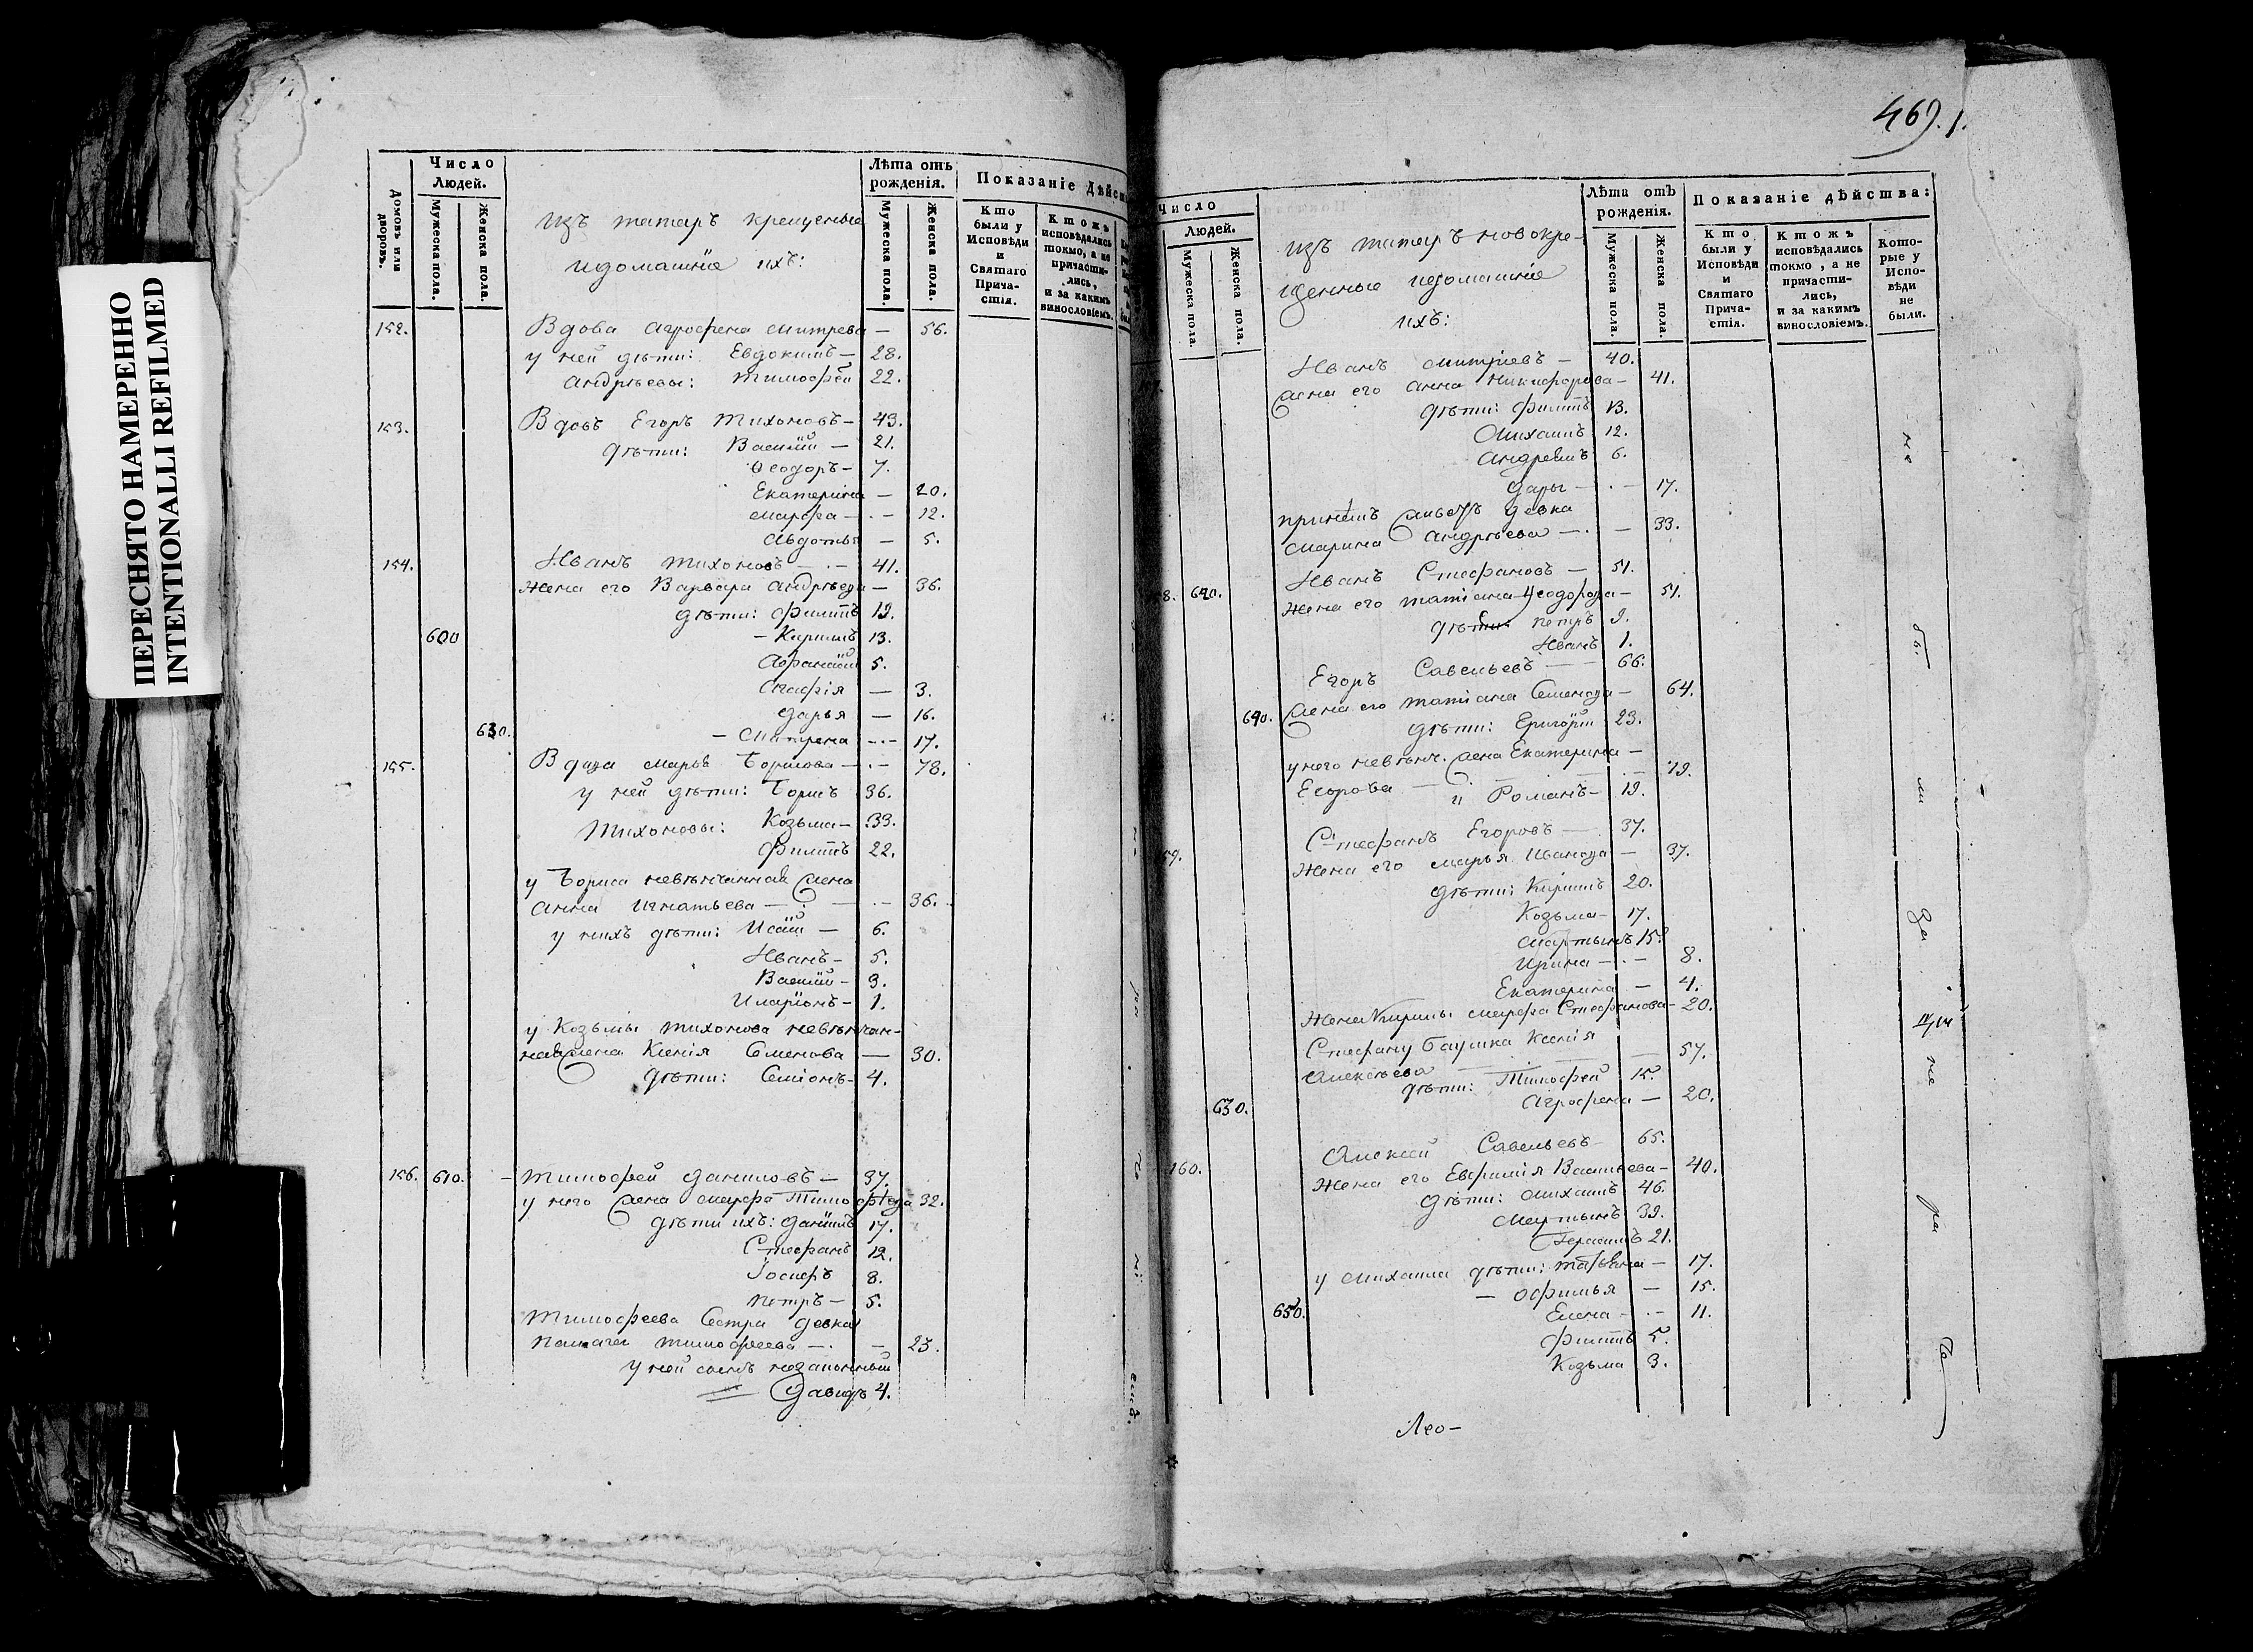 ПЕРЕСНЯТО НАМЕРЕННО
INTENTIONALLI REFILMED
Домовъ или дворовъ.
Число Людей.
Мужеска пола.
Женска пола.
Изъ татаръ крещеные
и домашніе ихъ:
Лѣта отъ рожденія.
Мужеска пола.
Женска пола.
Показаніе Дѣйст
Кто были у Исповѣди и Святаго Прича-стія.
Ктожъ исповѣдались токмо, а не причасти-лись, и за какимъ винословіемъ.
152. Вдова Агрофена Митрева — 56.
у ней дѣти: Евдокимъ — 28.
Андрѣевы: Тимофей 22.
153. Вдовъ Егоръ Тихоновъ — 43.
дѣти: Василій — 21.
Ѳеодоръ — 7.
Екатерина — 20.
Марфа — 12.
Авдотья — 5.
154. Иванъ Тихоновъ — 41.
Жена его Варвара Андрѣева — 36.
дѣти: Филипъ 19.
600 — Кирилъ 13.
Афанасій 5.
Агафія — 3.
Дарья — 16.
630. — Матрена — 17.
155. Вдова Марья Борисова — 78.
у ней дѣти: Борисъ 36.
Тихоновы: Козьма — 33.
Филипъ 22.
у Бориса невѣнчанная жена
Анна Игнатьева — 36.
у нихъ дѣти: Исай — 6.
Иванъ — 5.
Василій — 3.
Иларіонъ — 1.
у Козьмы Тихонова невѣнчан-
ная жена Ксенія Семенова — 30.
дѣти: Семіонъ — 4.
156. 610. — Тимофей Даниловъ — 37.
у него жена Марфа Тимофѣева 32.
дѣти ихъ: Даніилъ 17.
Стефанъ 12.
Іосифъ 8.
Петръ — 5.
Тимофеева Сестра девка
Палагея Тимофеева — 23.
У ней сынъ незаконный
Давидъ 4.
469.
Число Людей.
Мужеска пола.
Женска пола.
Изъ татаръ новокре-
щенные и домашніе
ихъ:
Лѣта отъ рожденія.
Мужеска пола.
Женска пола.
Показаніе дѣйства:
Кто были у Исповѣди и Святаго Прича-стія.
Ктожъ исповѣдались токмо, а не причасти-лись, и за какимъ винословіемъ.
Кото-рые у Испо-вѣди не были.
Иванъ Митріевъ — 40.
жена его Анна Никифорова — 41.
дѣти: Филипъ 13.
Михаилъ 12.
Андрей 6.
Дарья — 17.
девка
Марина Андрѣева — 33.
Иванъ Стефановъ — 51.
Жена его Татіана Ѳеодорова — 51.
дѣти: Петръ 9.
Иванъ 1.
Егоръ Савельевъ — 66.
640. жена его Татіана Семенова — 64.
дѣти: Григорій 23.
у него невѣнч. жена Екатерина —
Егорова — 19.
и Романъ — 19.
Стефанъ Егоровъ — 37.
Жена его Марья Иванова — 37.
дѣти: Кирилъ 20.
Козьма — 17.
Мартынъ 15.
Ирина — 8.
Екатерина — 4.
Жена Кирилы Марфа Стефанова — 20.
Стефану Ксенія
Алексѣева — 57.
дѣти: Тимофей 15.
630. Агрофена — 20.
160. Алексей Савельевъ — 65.
Жена его Евфимія Васильева — 40.
дѣти: Михаилъ 46.
Мартынъ 39.
Герасимъ 21.
у Михаила дѣти: Татьяна — 17.
— Офимья — 15.
650. Елена — 11.
Филипъ 5.
Козьма 3.
Лео-